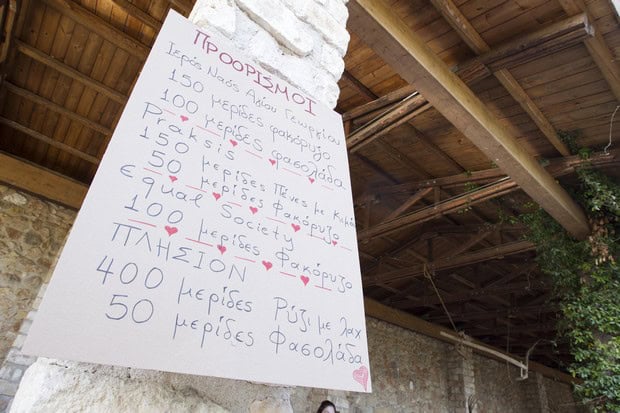 ΠΡΟΟΡΙΣΜΟΙ
Ιερός Ναός Αγίου Γεωργίου
150 μερίδες φακόρυζο
100 μερίδες φασολάδα
Praksis
150 μερίδες Πένες με Κιμά
50 μερίδες Φακόρυζο
equal Society
100 μερίδες Φακόρυζο
ΠΛΗΣΙΟΝ
400 μερίδες Ρύζι με λαχ
50 μερίδες Φασολάδα